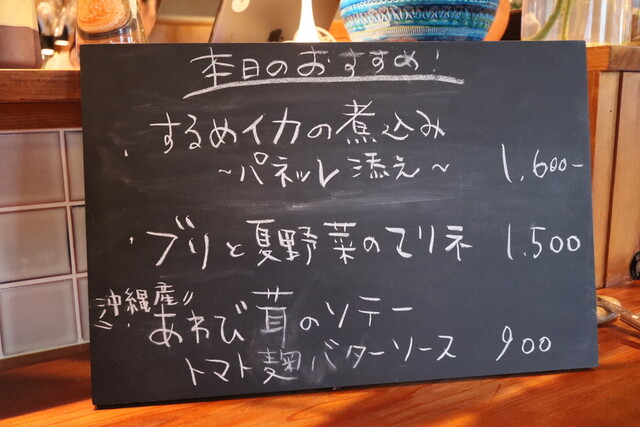 本日のおすすめ!
・するめイカの煮込み
~パネッレ添え~ 1,600-
・ブリと夏野菜のマリネ 1,500
沖縄産
・あわび茸のソテー
トマト麹バターソース 900